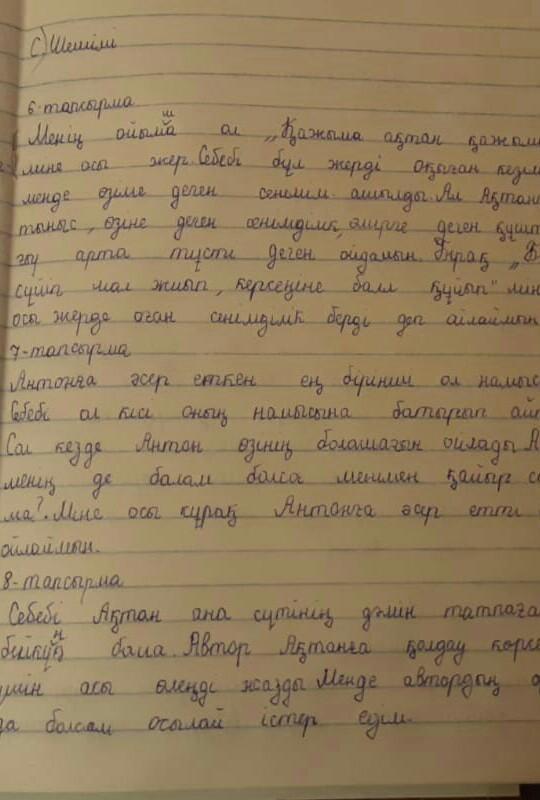 С) Шешімі
6-тапсырма
Менің ойымша ол „Қажыма ақтан қажыма
міне осы жер. Себебі бұл жерді оқыған кезім
менде өзіме деген сенімім ашылды. Ал Ақтан
тыныс, өзіне деген сенімділік, өмірге деген құшт
ғу арта түсті деген ойдамын. Бірақ „
сүйіп мал жиып, керсеңіне балл құйып" мін
осы жерде оған сенімділік берді деп ойлаймын
7-тапсырма
Антонға әсер еткен ең бірінші ол намыс
Себебі ол кісі оның намысына батырып айт
Сол кезде Антон өзінің болашағын ойлады А
менің де балам болса менімен қайыр с
ма?. Міне осы құрақ Антонға әсер етті
ойлаймын.
8-тапсырма
Себебі Ақтан ана сүтінің дәмін татпаға
бейкүн бала. Автор Ақтанға қолдау көрсе
үшін осы өлеңді жазды Менде автордың о
да болсам осылай істер едім.